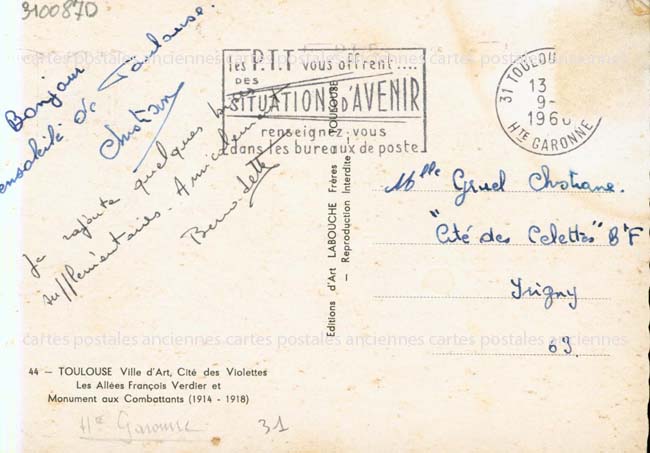 3100870
Bonjour
ensoleillé de Toulouse.
Christian
Je rajoute quelques bises
supplémentaires. Amicalement
Bernadette
les P.T.T vous offrent....
DES
SITUATIONS D'AVENIR
renseignez-vous
dans les bureaux de poste
31 TOULOU
13
9-
196
HTE GARONNE
Mlle Gruel Christiane.
"Cité des Celettes" B^t F
Irigny
69.
Editions d'Art LABOUCHE Frères TOULOUSE
— Reproduction Interdite —
cartes postales anciennes cartes postales anciennes cartes postales anciennes
cartes postales anciennes cartes postales anciennes cartes postales anciennes
44 — TOULOUSE Ville d'Art, Cité des Violettes
Les Allées François Verdier et
Monument aux Combattants (1914 - 1918)
Hte Garonne
31